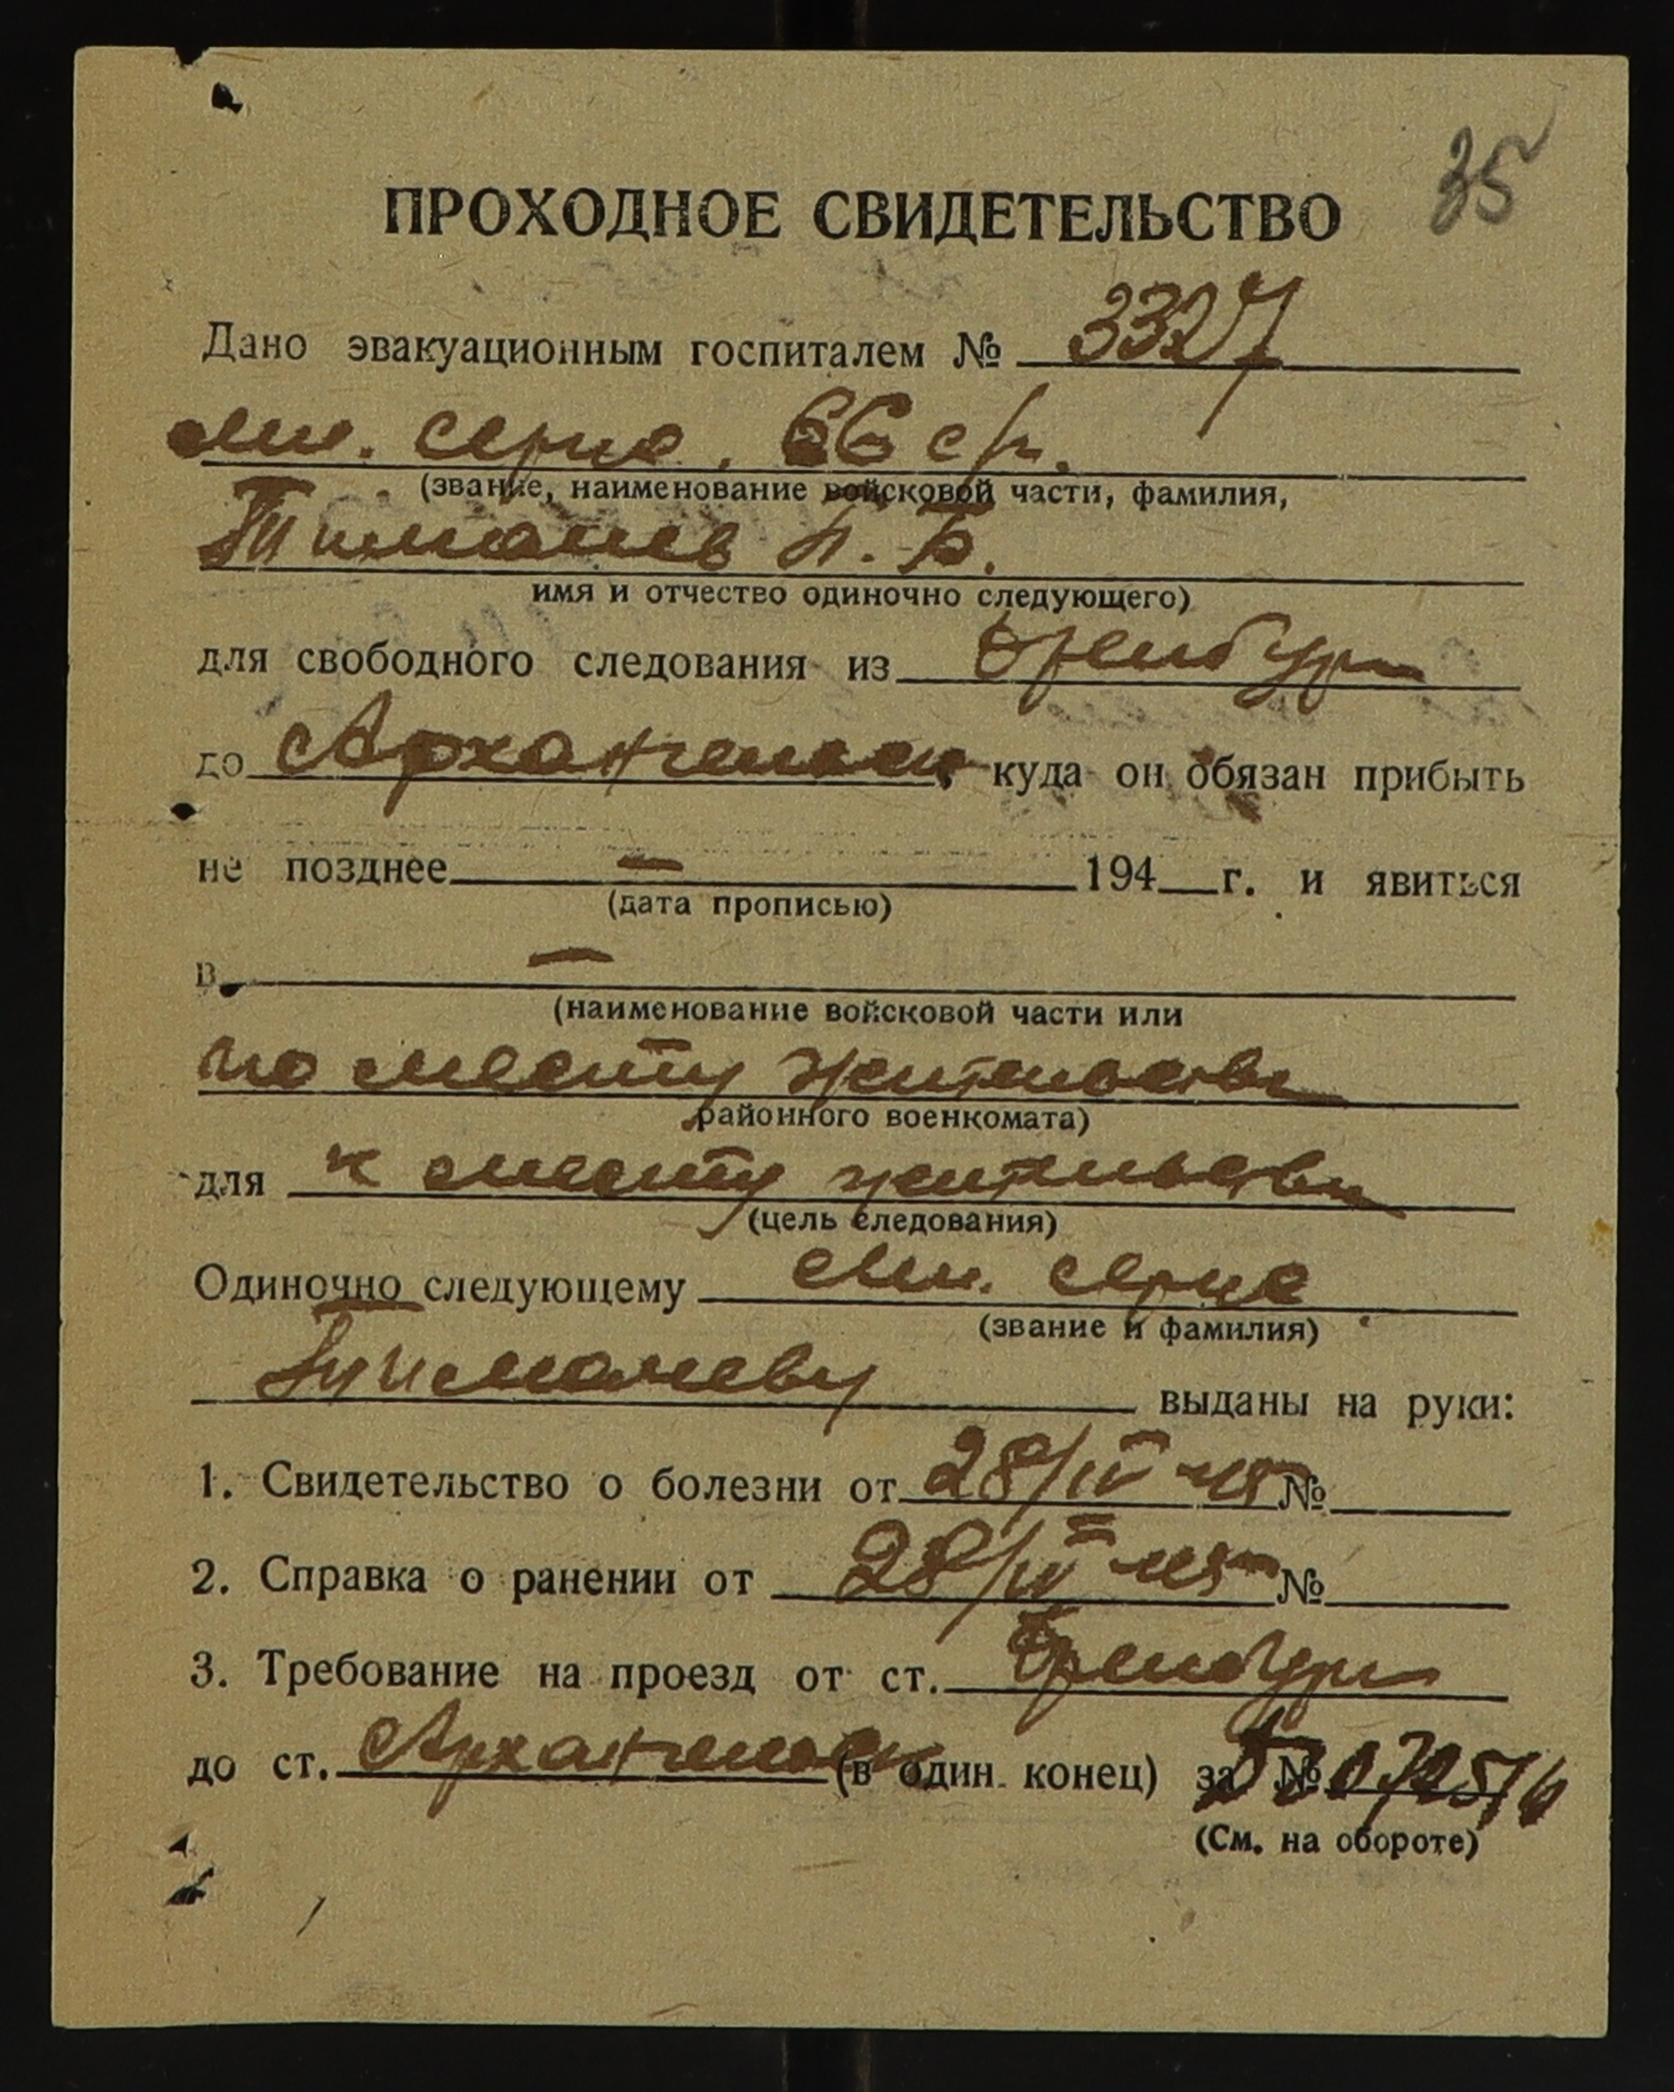 35
ПРОХОДНОЕ СВИДЕТЕЛЬСТВО
Дано эвакуационным госпиталем № 3327
мл. серж. 66 с/п.
(звание, наименование войсковой части, фамилия,
Тимашев П. Б.
имя и отчество одиночно следующего)
для свободного следования из Оренбург
до Архангельск, куда он обязан прибыть
не позднее — 194 г. и явиться
(дата прописью)
в —
(наименование войсковой части или
по месту жительства
районного военкомата)
для к месту жительства
(цель следования)
Одиночно следующему мл. серж
(звание и фамилия)
Тимашеву выданы на руки:
1. Свидетельство о болезни от 28/IV 45 №
2. Справка о ранении от 28/IV 45 №
3. Требование на проезд от ст. Оренбург
до ст. Архангельск (в один конец) за №
(См. на обороте)